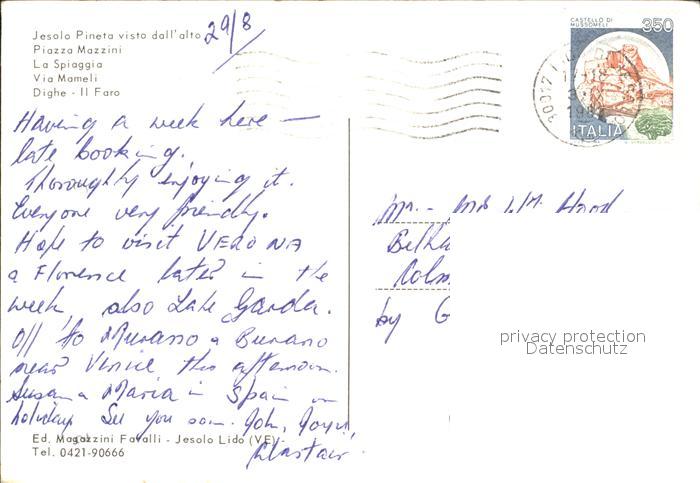 Jesolo Pineta visto dall'alto
Piazza Mazzini
La Spiaggia
Via Mameli
Dighe - Il Faro
29/8
CASTELLO DI
MUSSOMELI
350
ITALIA
30017
Having a week here —
late booking.
Thoroughly enjoying it.
Everyone very friendly.
Hope to visit VERONA
a Florence later in the
week, also Lake Garda.
Off to Murano a Burano
near Venice this afternoon.
Susan a Maria in Spain on
holiday. See you soon. John, Joyce,
Alastair.
Mr. - Mrs Hood
by G
privacy protection
Datenschutz
Ed. Magazzini Favalli - Jesolo Lido (VE)
Tel. 0421-90666